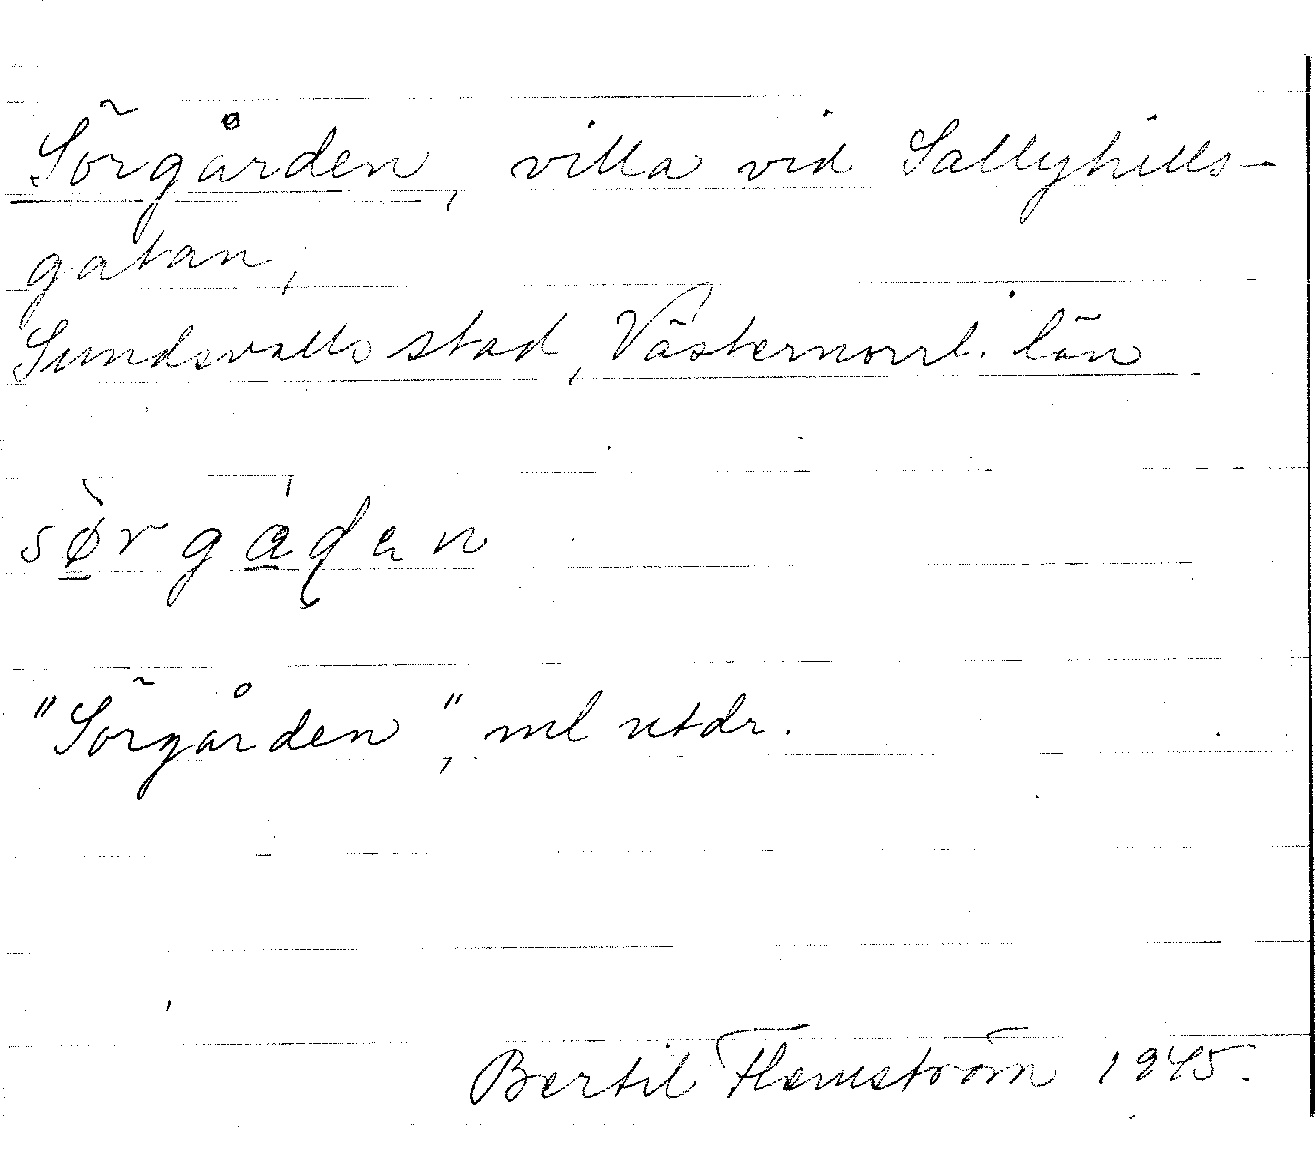 Sörgården, villa vid Sallyhills-
gatan,
Sundsvalls stad, Västernorrl. län
sø̀rgádan
"Sörgården", ml utdr.
Bertil Flemström 1945.